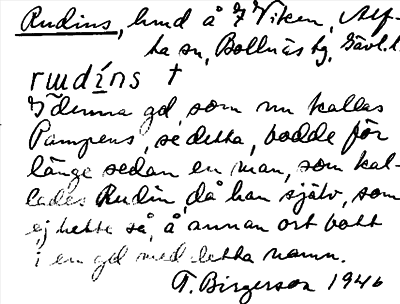 Rudins, hmd å 7 Viken, Alf-
ta sn, Bollnäs tg, Gävl. l.
rɯdíns †
I denna gd, som nu kallas
Pampens, se detta, bodde för
länge sedan en man, som kal-
lades Rudin, då han själv, som
ej hette så, å annan ort bott
i en gd med detta namn.
T. Birgerson 1946